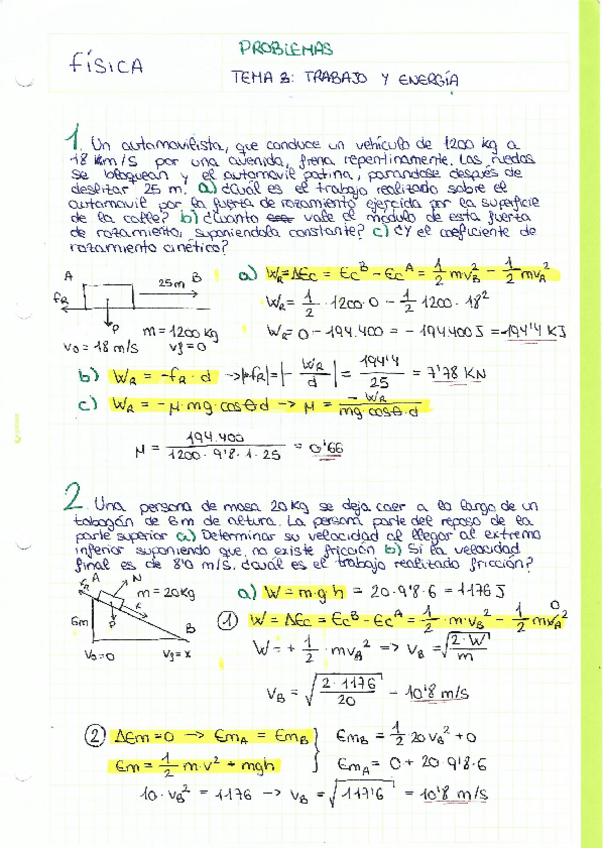 FÍSICA
PROBLEMAS
TEMA 3: TRABAJO Y ENERGÍA
1. Un automovilista, que conduce un vehículo de 1200 kg a
18 km/s por una avenida, frena repentinamente. Las ruedas
se bloquean y el automovil patina, parandose después de
deslizar 25 m. a) ¿Cuál es el trabajo realizado sobre el
automovil por la fuerza de rozamiento ejercida por la superficie
de la calle? b) ¿Cuanto vale el módulo de esta fuerza
de rozamiento, suponiendola constante? c) ¿Y el coeficiente de
rozamiento cinético?
A 25m B
fR
P m = 1200 kg
v0 = 18 m/s vf = 0
a) WR = ΔEc = EcB - EcA = 1/2 mvB² - 1/2 mvA²
WR = 1/2 · 1200 · 0 - 1/2 1200 · 18²
WR = 0 - 194.400 = - 194.400 J = -194'4 KJ
b) WR = -fR · d -> |-fR| = |- WR/d| = 194'4/25 = 7'78 KN
c) WR = -μ · mg · cosθ d -> μ = - WR / mg · cosθ · d
μ = 194.400 / 1200 · 9'8 · 1 · 25 = 0'66
2. Una persona de masa 20 kg se deja caer a lo largo de un
tobogán de 6 m de altura. La persona parte del reposo de la
parte superior a) Determinar su velocidad al llegar al extremo
inferior suponiendo que no existe fricción b) Si la velocidad
final es de 8'0 m/s. ¿cuál es el trabajo realizado fricción?
fR A N m = 20 kg
6m P B
v0 = 0 vf = x
a) W = m·g·h = 20 · 9'8 · 6 = 1176 J
1) W = ΔEc = EcB - EcA = 1/2 · m · vB² - 1/2 mvA² 0
W = + 1/2 · mvA² => vB = √2 · W / m
vB = √2 · 1176 / 20 - 10'8 m/s
2) ΔEm = 0 -> EmA = EmB } EmB = 1/2 20 vB² + 0
Em = 1/2 m · v² + mgh } EmA = 0 + 20 · 9'8 · 6
10 · vB² = 1176 -> vB = √117'6 = 10'8 m/s